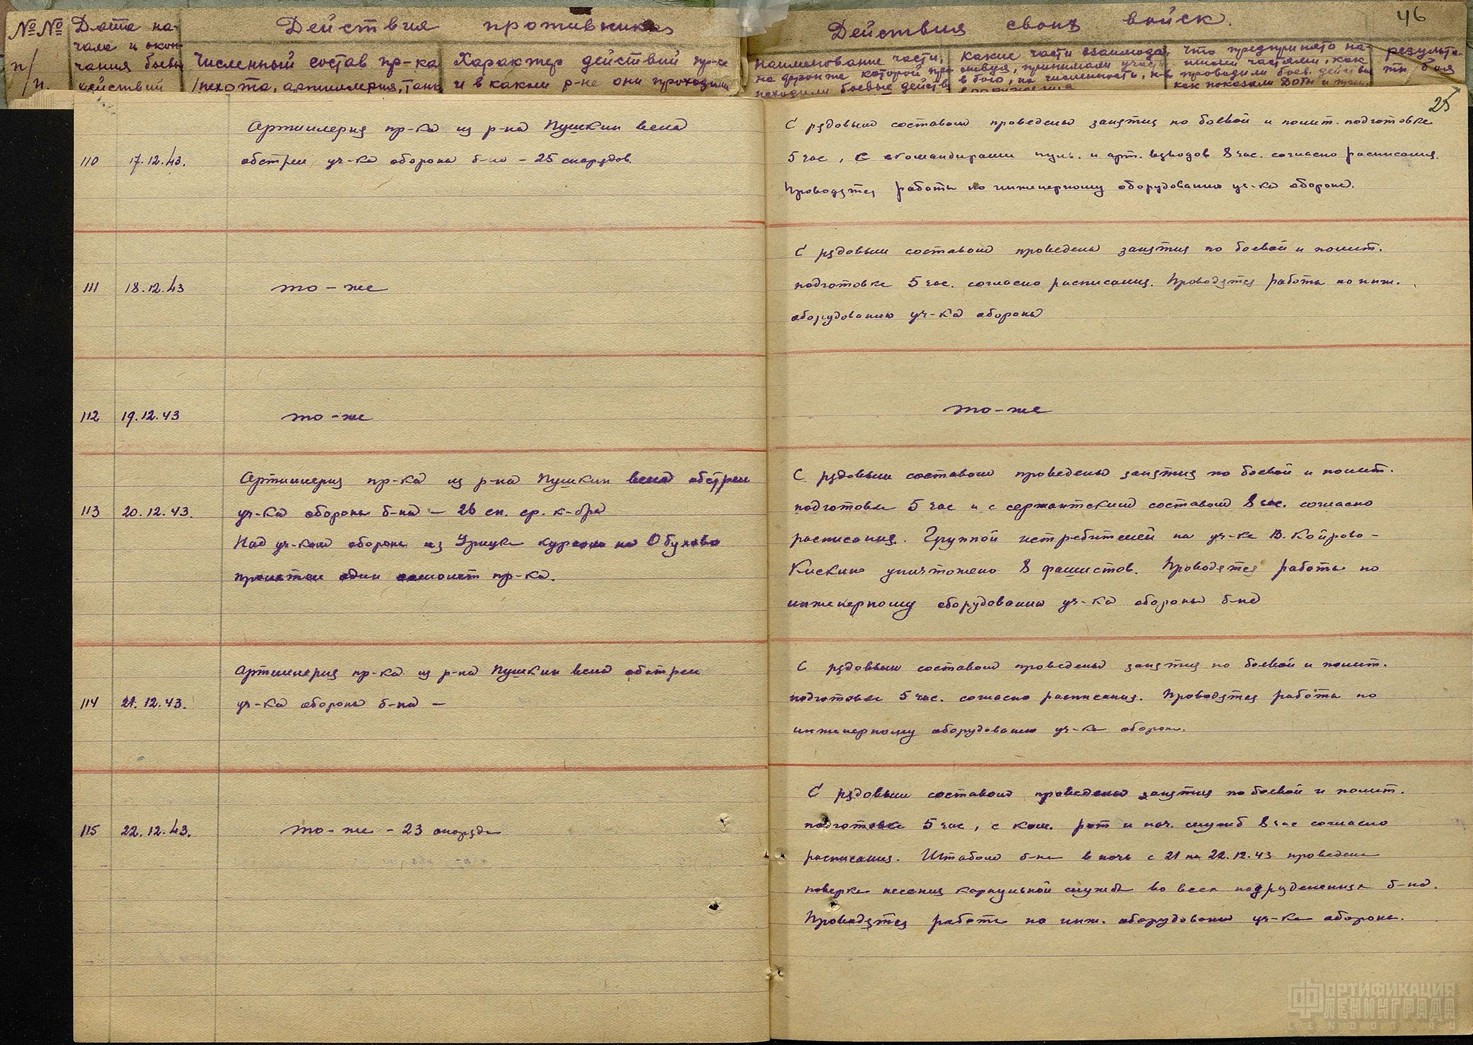 №№ п/п.
Дата начала и окончания боевых действий
Действия противника
Численный состав пр-ка /пехота, артиллерия, танк
Характер действий пр-ка и в каком р-не они проходили
Действия своих войск.
46
наименование части, на фронте которой происходили боевые действ
какие части взаимодействуя, принимали участ. в бою, их численность,
что предпринято нашими частями, как проводили боев. действ как показали ДОТы и
результаты боя
25
Артиллерия пр-ка из р-на Пушкин вела
110 17.12.43. обстрел уч-ка обороны б-на – 25 снарядов
С рядовым составом проведены занятия по боевой и полит. подготовке
5 час, с командирами пуль. и арт. взводов 8 час. согласно расписания.
Проводятся работы по инженерному оборудованию уч-ка обороны.
111 18.12.43 то-же
С рядовым составом проведены занятия по боевой и полит.
подготовке 5 час. согласно расписания. Проводятся работы по инж.
оборудованию уч-ка обороны
112 19.12.43 то-же
то-же
Артиллерия пр-ка из р-на Пушкин вела обстрел
113 20.12.43. уч-ка обороны б-на – 26 сн. ср. к-бра
Над уч-ком обороны из Урицка курсом на Обухово
пролетел один самолет пр-ка.
С рядовым составом проведены занятия по боевой и полит.
подготовке 5 час и с сержантским составом 8 час. согласно
расписания. Группой истребителей на уч-ке В. Койрово-
Кискино уничтожено 8 фашистов. Проводятся работы по
инженерному оборудованию уч-ка обороны б-на
Артиллерия пр-ка из р-на Пушкин вела обстрел
114 21.12.43. уч-ка обороны б-на –
С рядовым составом проведены занятия по боевой и полит.
подготовке 5 час. согласно расписания. Проводятся работы по
инженерному оборудованию уч-ка обороны.
115 22.12.43. то-же – 23 снаряда
С рядовым составом проведены занятия по боевой и полит.
подготовке 5 час, с ком. рот и нач. служб 8 час согласно
расписания. Штабом б-на в ночь с 21 на 22.12.43 проведена
поверка несения караульной службы во всех подразделениях б-на.
Проводятся работы по инж. оборудованию уч-ка обороны.
ФОРТИФИКАЦИЯ
ЛЕНИНГРАДА